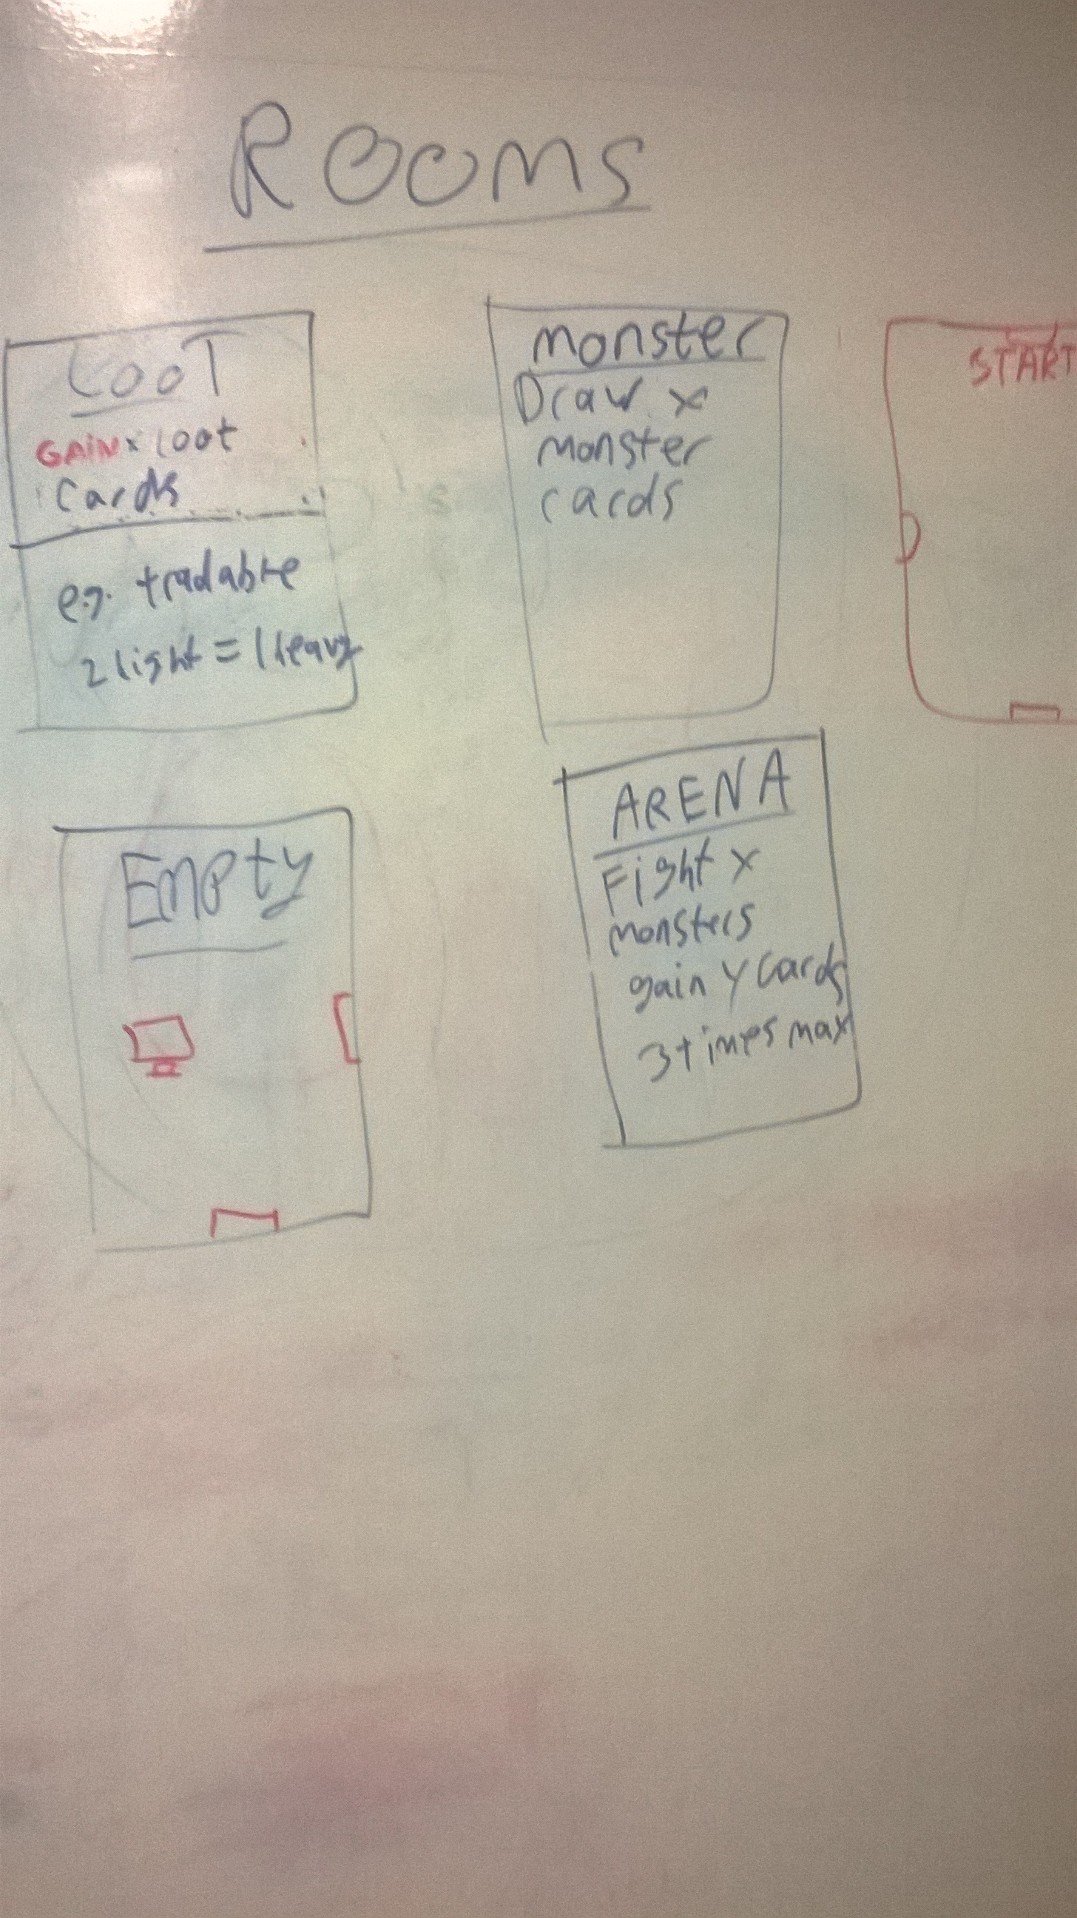 ROOMS
LOOT
GAIN x loot
Cards
e.g. tradable
2 light = 1 Heavy
monster
Draw x
monster
cards
START
Empty
ARENA
Fight x
monsters
gain y cards
3 times max